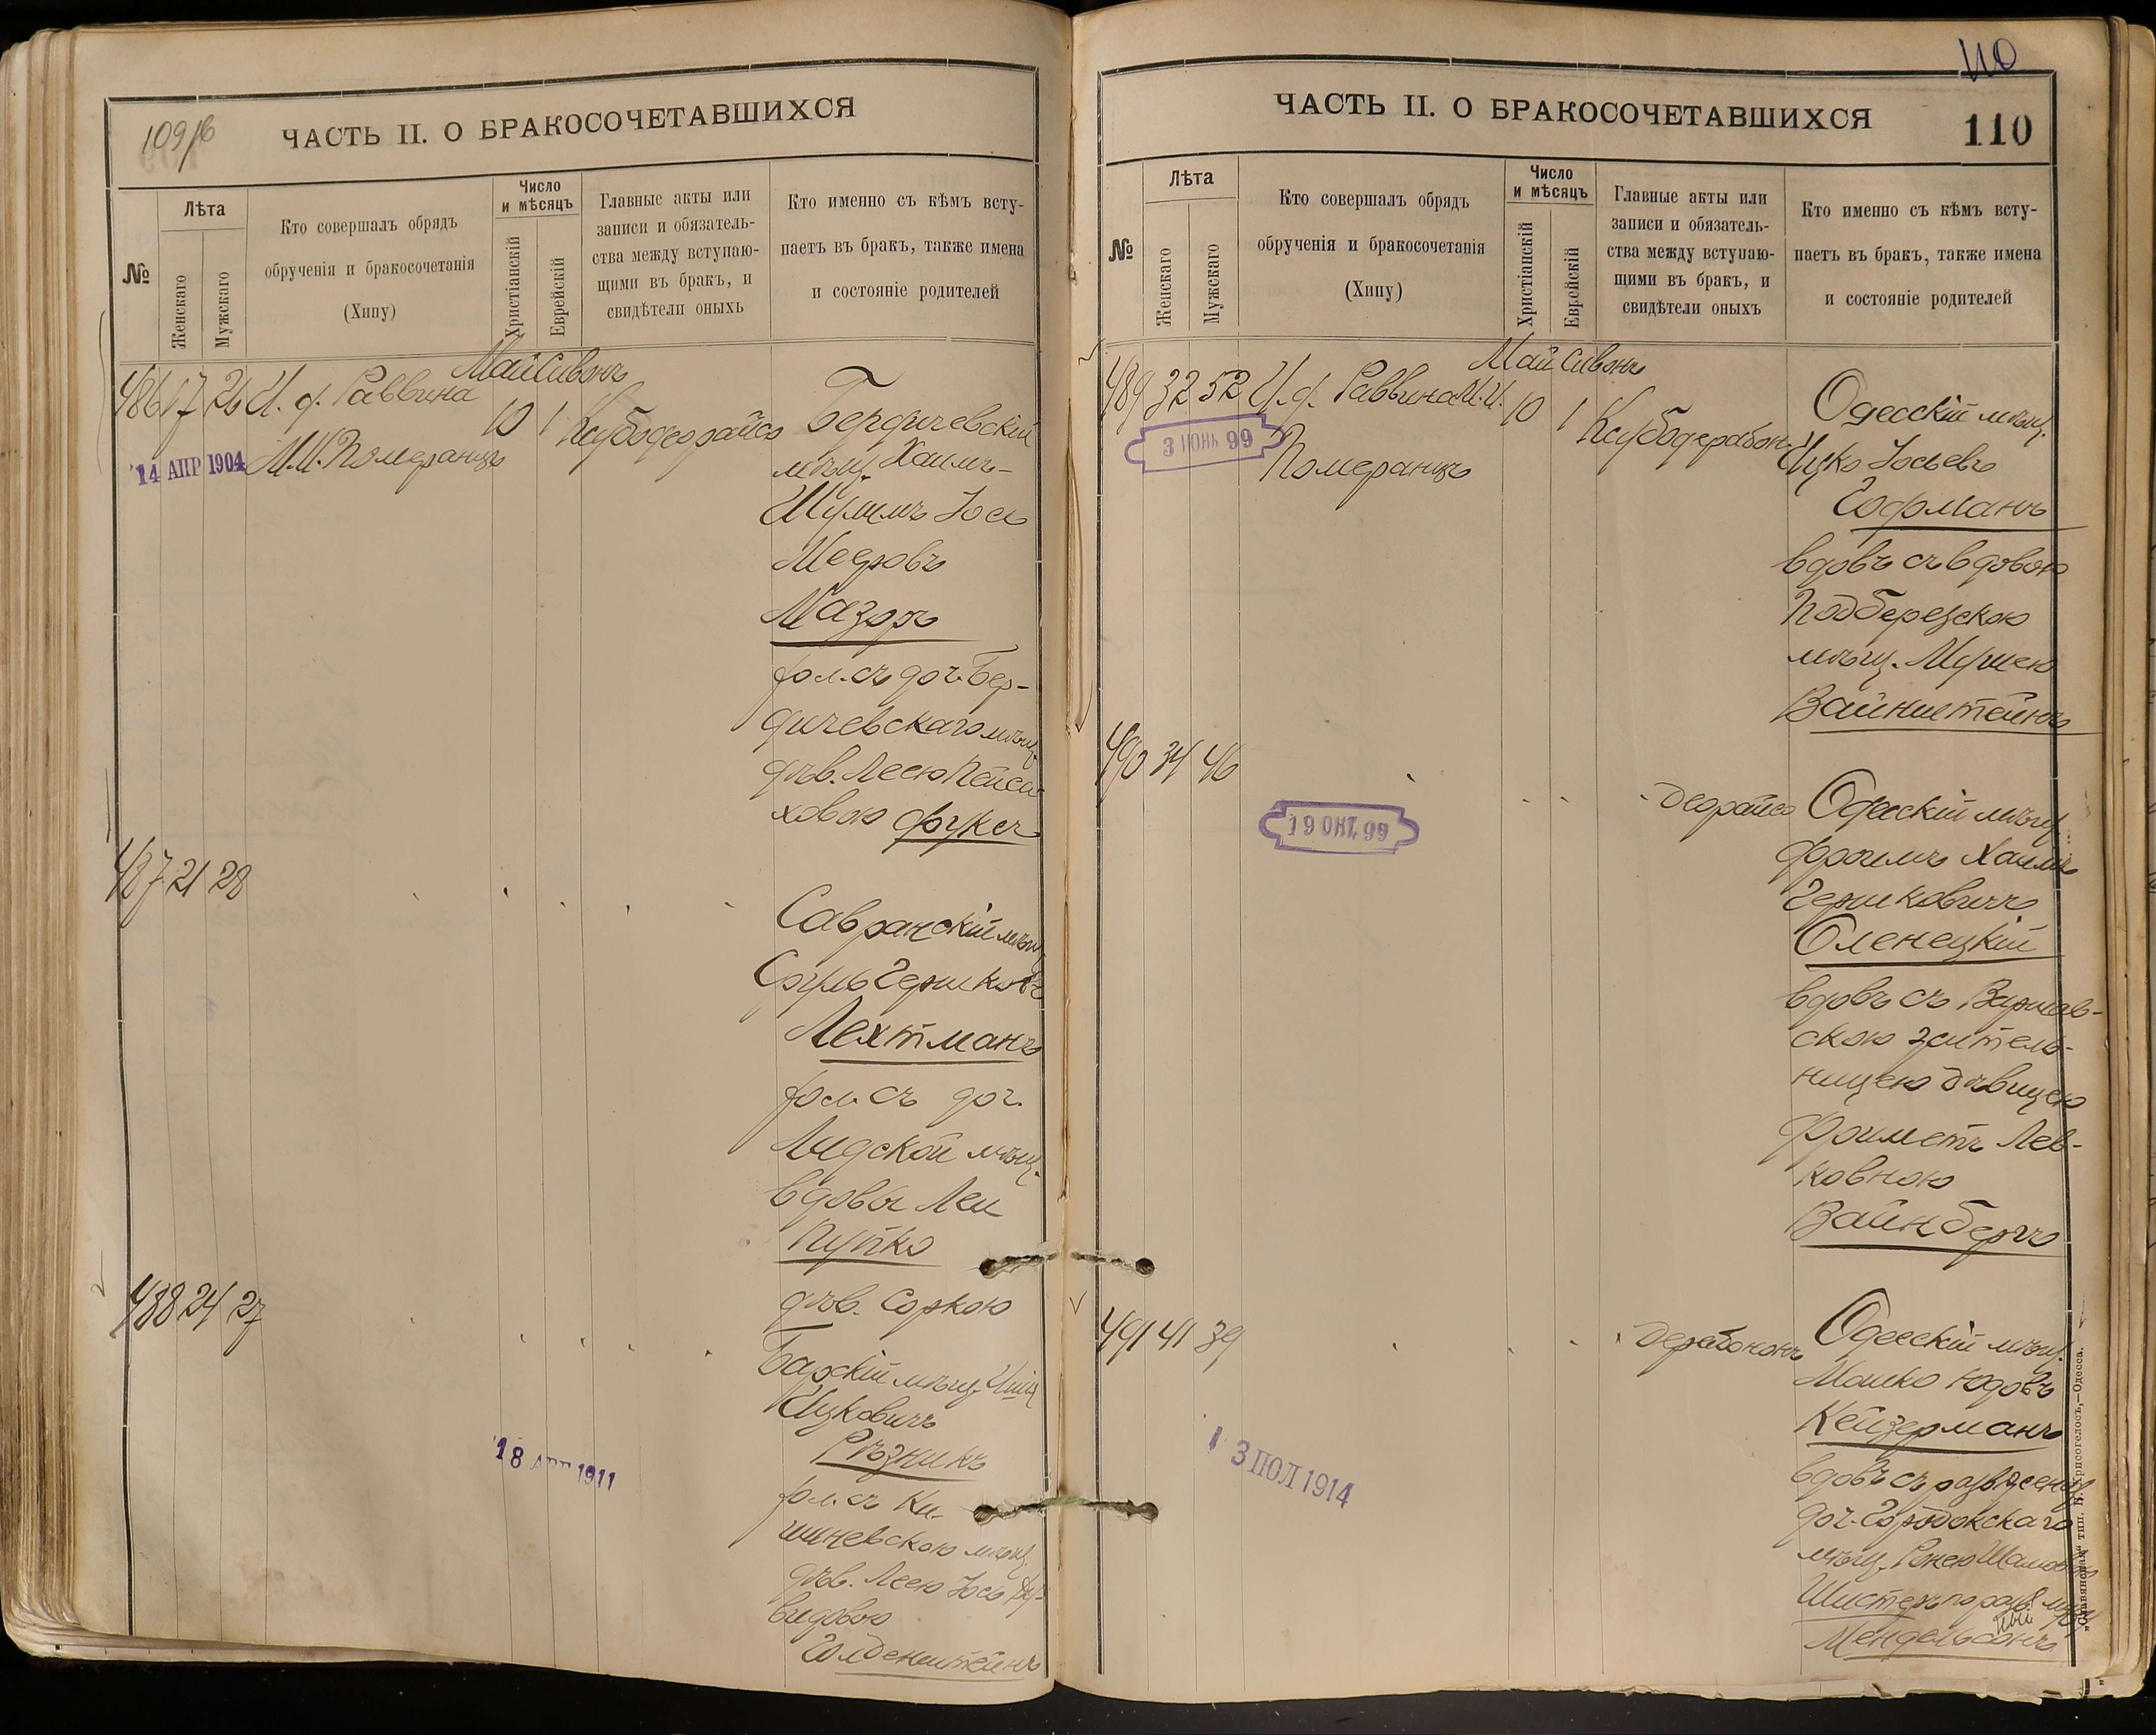 109/б
ЧАСТЬ II. О БРАКОСОЧЕТАВШИХСЯ
№
Лѣта
Женскаго
Мужскаго
Кто совершалъ обрядъ
обрученія и бракосочетанія
(Хипу)
Число
и мѣсяцъ
Христіанскій
Еврейскій
Главные акты или
записи и обязатель-
ства между вступаю-
щими въ бракъ, и
свидѣтели оныхъ
Кто именно съ кѣмъ всту-
паетъ въ бракъ, также имена
и состояніе родителей
Май Сивонъ
486 17 26 И. д. Раввина
М.И. Померанцъ
10 1
14 АПР 1904
Бердичевскій
мѣщ. Хаимъ-
Шулимъ Іось
Мееровъ
Мазоръ
хол. съ доч. Бер-
дичевскаго мѣщ.
дѣв. Леею Пейса
ховою Фуксъ
487 21 28
Савранскій мѣщ.
Сруль Гершковъ
Лехтманъ
хол. съ доч.
Лидской мѣщ.
вдовы Леи
Пупко
дѣв. Соркою
488 24 27
Барскій мѣщ.
Ицковичъ
Рѣзникъ
хол. съ Ки-
шиневскою мѣщ.
дѣв. Леею Іось
видовою
Голденштейнъ
18 1911
110
ЧАСТЬ II. О БРАКОСОЧЕТАВШИХСЯ
110
№
Лѣта
Женскаго
Мужскаго
Кто совершалъ обрядъ
обрученія и бракосочетанія
(Хипу)
Число
и мѣсяцъ
Христіанскій
Еврейскій
Главные акты или
записи и обязатель-
ства между вступаю-
щими въ бракъ, и
свидѣтели оныхъ
Кто именно съ кѣмъ всту-
паетъ въ бракъ, также имена
и состояніе родителей
Май Сивонъ
489 32 52 И. д. Раввина М.И.
Померанцъ
10 1
3 ІЮНЬ 99
Одесскій мѣщ.
Ицко Іосьевъ
Гофманъ
вдовъ съ вдовою
Подберезскою
мѣщ. Миршею
Вайнштейнъ
490 34 46
19 ОКТ. 99
Деорайсо
Одесскій мѣщ.
Фроимъ Хаимъ
Гершковичъ
Оленецкій
вдовъ съ Варшав-
скою житель-
ницею дѣвицею
Фриметъ Лев-
ковною
Вайнбергъ
491 41 39
Дерабононъ
Одесскій мѣщ.
Мошко Юдовъ
Кейзерманъ
вдовъ съ
доч. Городокскаго
мѣщ.
Мендельсонъ
1 3 ІЮЛ 1914
„Славянская“ тип. Н. Хрисогелосъ,—Одесса.